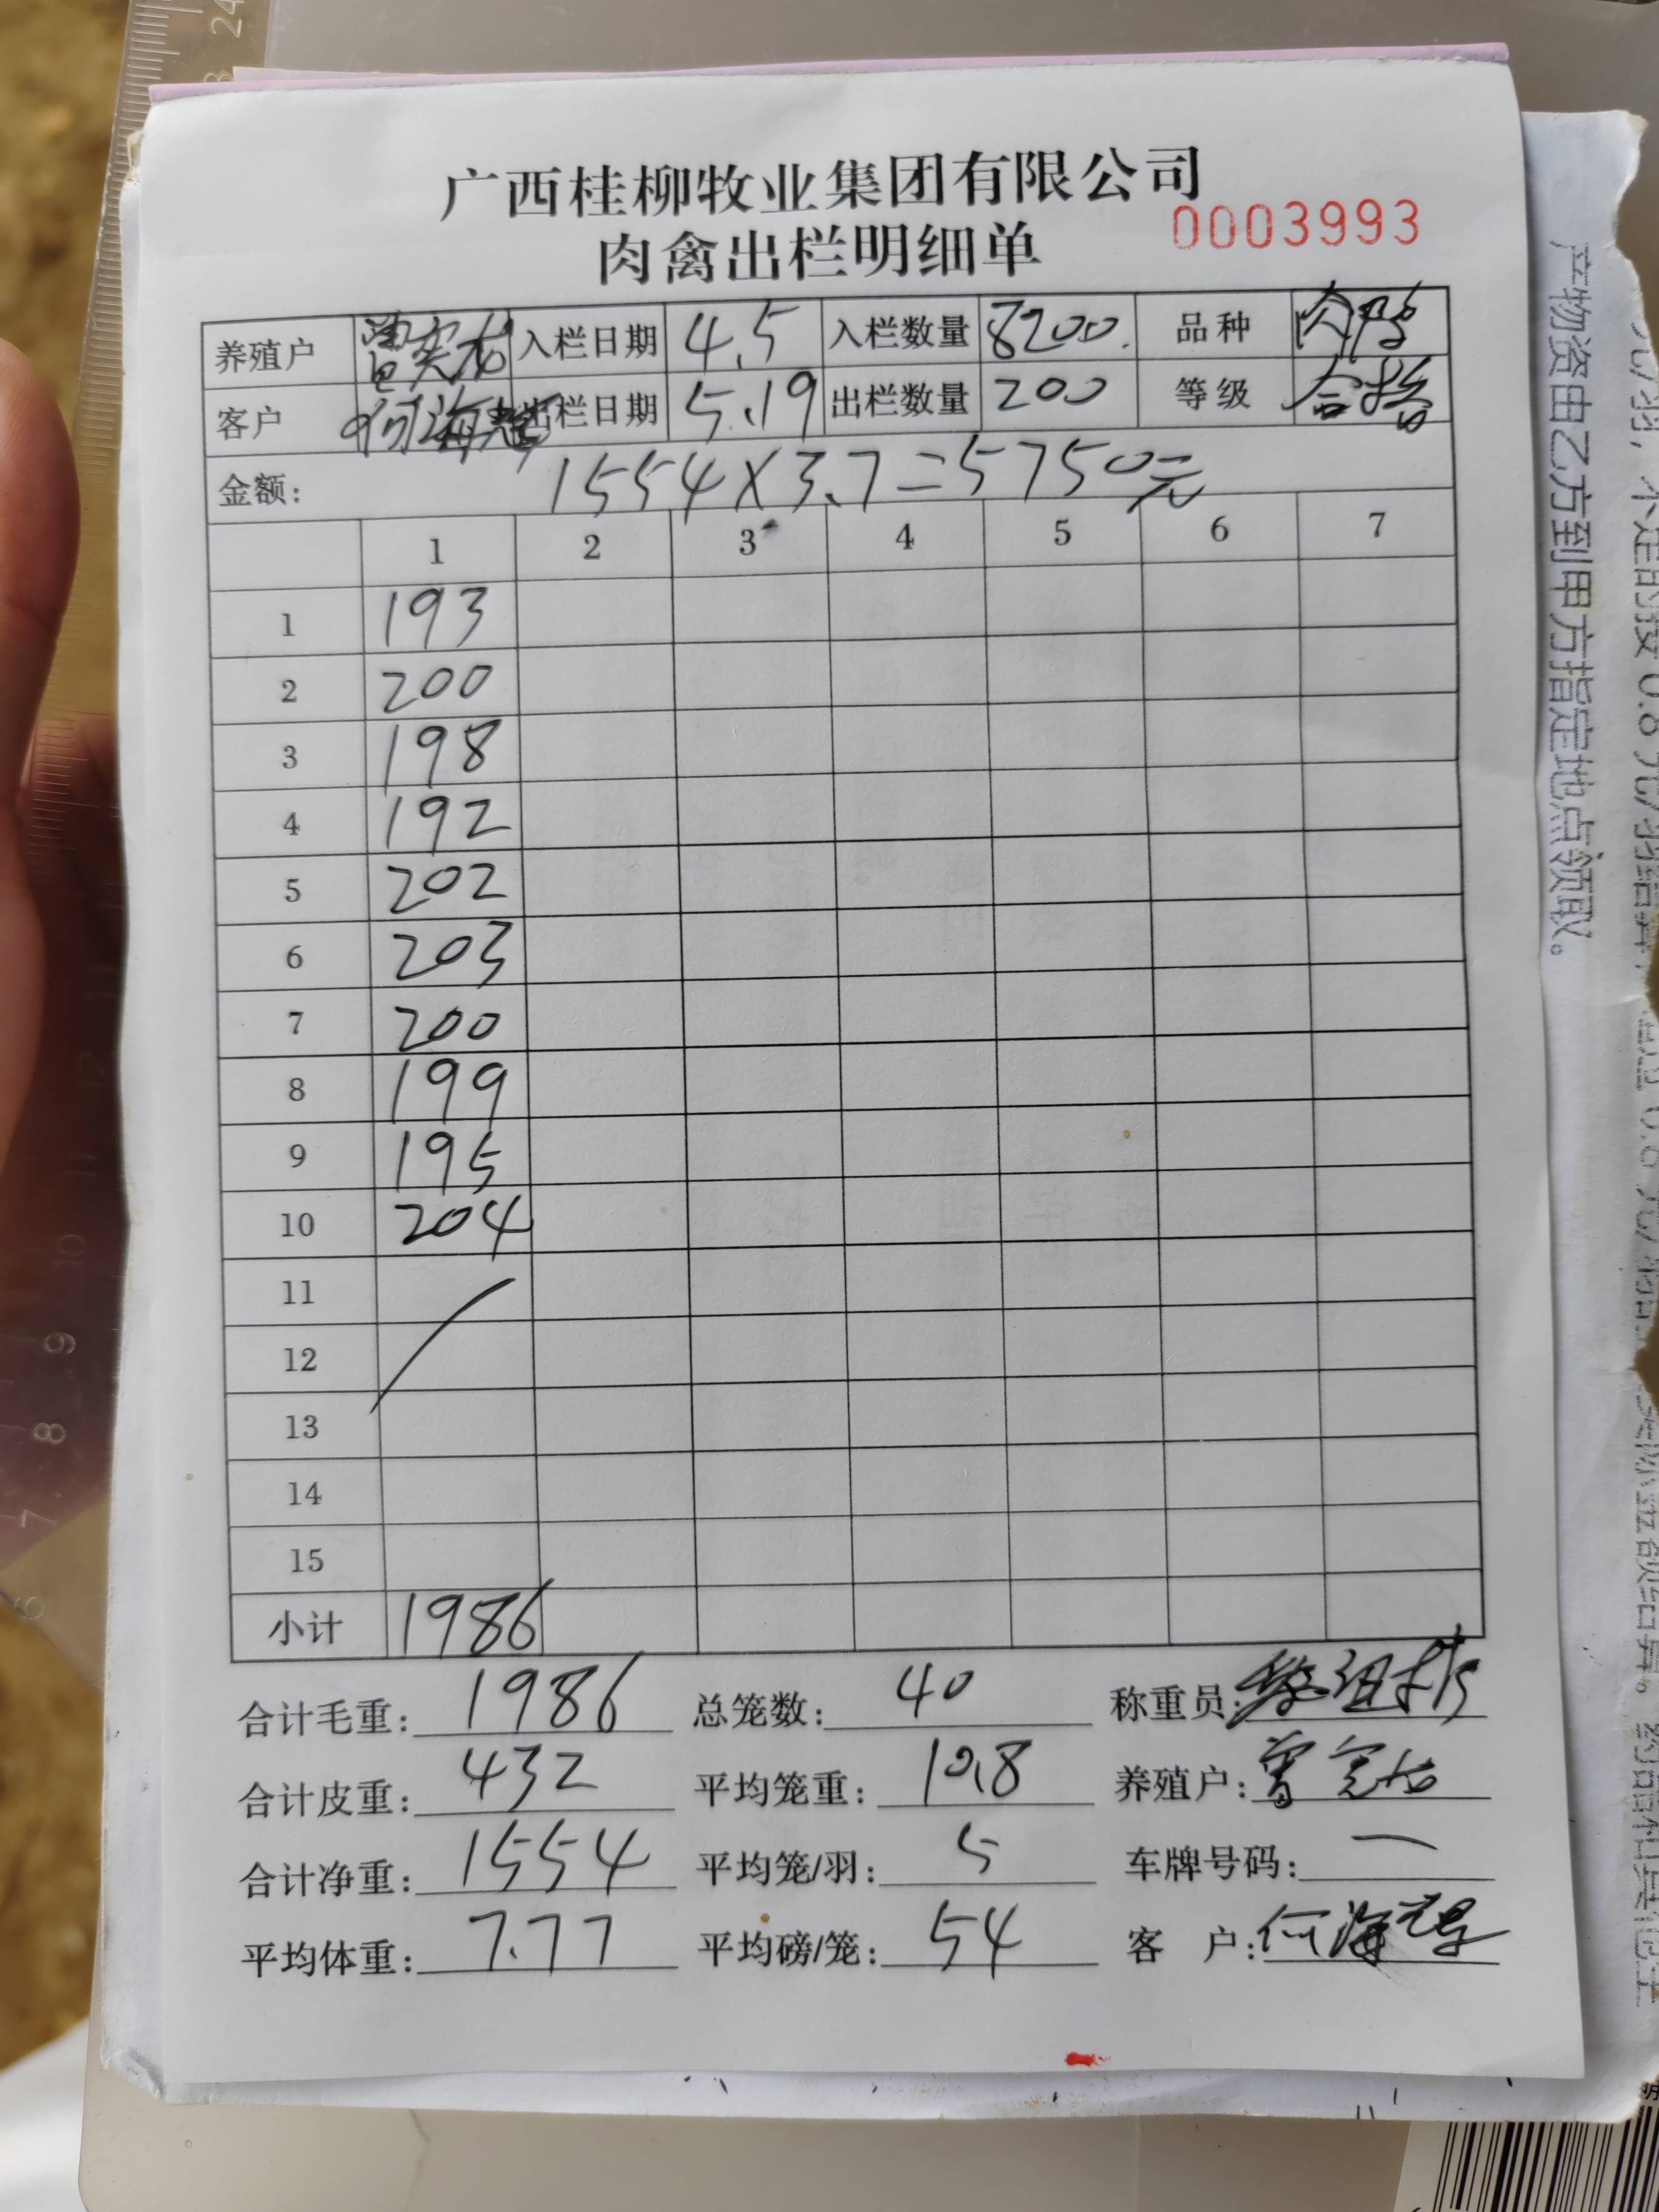 广西桂柳牧业集团有限公司
肉禽出栏明细单 0003993
养殖户 入栏日期 4.5 入栏数量 8200. 品种 肉鸭
客户 何海 出栏日期 5.19 出栏数量 200 等级 合格
金额: 1554×3.7=5750元
1 2 3 4 5 6 7
1 193
2 200
3 198
4 192
5 202
6 203
7 200
8 199
9 195
10 204
11
12
13
14
15
小计 1986
合计毛重: 1986 总笼数: 40 称重员:
合计皮重: 432 平均笼重: 10.8 养殖户: 曾
合计净重: 1554 平均笼/羽: 5 车牌号码: 一
平均体重: 7.77 平均磅/笼: 54 客 户: 何海
产物资由乙方到甲方指定地点领取。